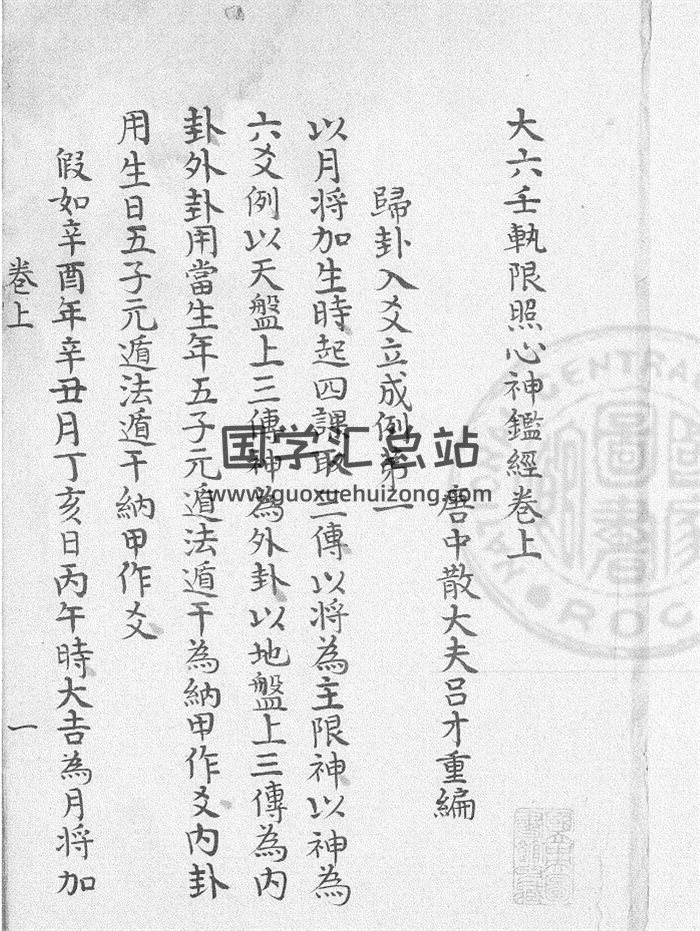 大六壬執限照心神鑑經卷上
唐中散大夫吕才重編
歸卦入爻立成例第一
以月将加生時起四課取三傳以将為主限神以神為
六爻例以天盤上三傳神為外卦以地盤上三傳為内
卦外卦用當生年五子元遁法遁干為納甲作爻内卦
用生日五子元遁法遁干納甲作爻
假如辛酉年辛丑月丁亥日丙午時大吉為月将加
卷上
一
国学汇总站
www.guoxuehuizong.com
CENTRAL
ROC
圖書